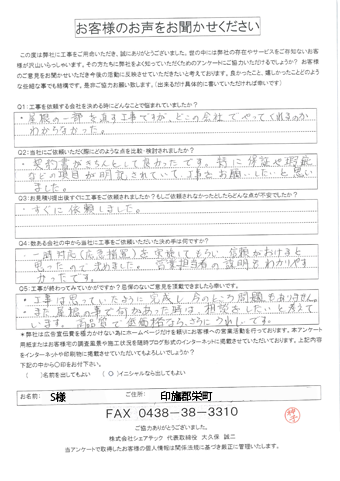 お客様のお声をお聞かせください
この度は弊社に工事をご用命いただき、誠にありがとうございました。世の中には弊社の存在やサービスをご存知ないお客
様が沢山いらっしゃいます。その方たちに弊社をよく知っていただくためのアンケートにご協力いただけるでしょうか？ お客様
のご意見をお聞かせいただき今後の活動に反映させていただきたいと考えております。良かったこと、嬉しかったことどのよう
な些細な事でも結構です。是非ご協力お願い致します。（出来るだけ具体的に書いていただければ幸いです）
Q1：工事を依頼する会社を決める時にどんなことで悩まれていましたか？
・屋根の一部を直す工事ですが、どこの会社でやってくれるのか
わからなかった。
Q2：当社にご依頼いただく際にどのような点を比較・検討されましたか？
・契約書がきちんとして良かったです。特に保証や瑕疵
などの項目が明記されていて、工事をお願いしたいと思い
ました。
Q3：お見積り提出後すぐに工事をご依頼されましたか？もしご依頼されなかったとしたらどんな点が不安でしたか？
・すぐに依頼しました。
Q4：数ある会社の中から当社に工事をご依頼いただいた決め手は何ですか？
・一時対応(応急措置)を実施してもらい、信頼がおけると
思ったので決めました。営業担当者の説明もわかりやす
かったです。
Q5：工事が終わってみていかがですか？忌憚のないご意見を頂戴できましたら幸いです。
・工事は思っていたように完成し、今のところ問題もありません。
・また屋根の事で何かあった時は、相談をしたいと考えて
います。高品質で低価格なら、さらにうれしです。
＊弊社は広告宣伝費を極力かけない為にホームページだけを頼りにお客様への営業活動を行っております。本アンケート
用紙またはお客様宅の調査風景や施工状況を随時ブログ形式のインターネットに掲載させていただいております。上記内容
をインターネットや印刷物に掲載させていただいてもよろしいでしょうか？
下記の中から○印をお付け下さい。
（ ）名前を出してもよい （○）イニシャルなら出してもよい
お名前： S様 ご住所： 印旛郡栄町
FAX 0438-38-3310
ご協力ありがとうございました。
株式会社シェアテック 代表取締役 大久保 誠二
当アンケートで取得したお客様の個人情報は関係法規に基づき厳正に管理いたします。